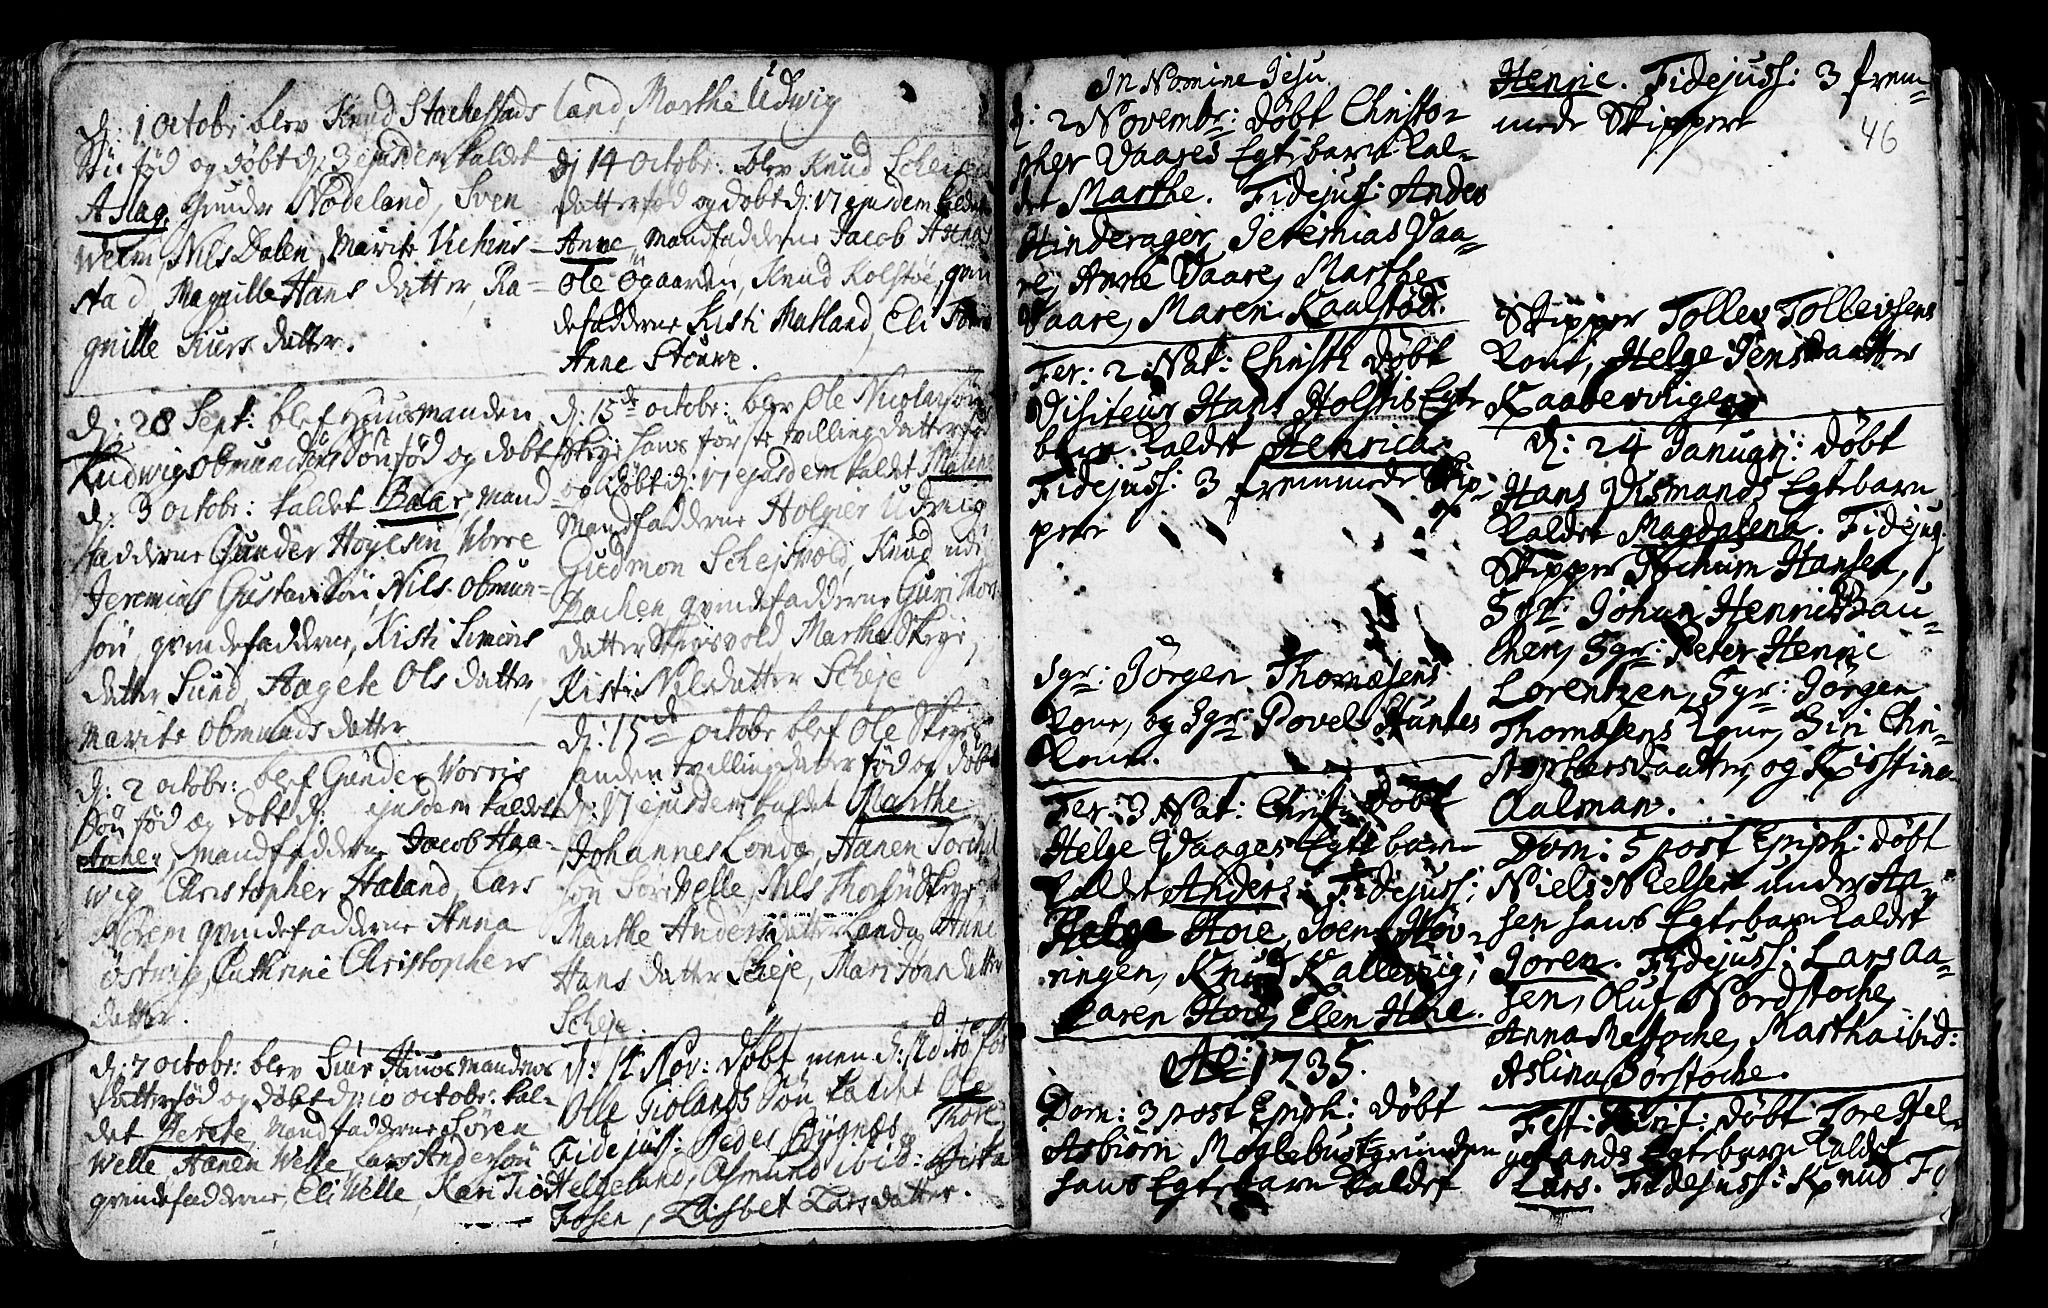 d: 1 octobr: blev Knud Stachestads
fød og døbt d: 3 ejusdem kaldet
Aslag. Gunder Nødeland, Sven
Welm, Nils Dalen, Marite Vichins-
stad, Magnille Hans datter, Ra-
gnille Siurs datter.
d: 28 Sept: blef Huusmanden
Ludwig Obmunds Søn fød og døbt
d: 3 octobr: kaldet Baar, Mand-
fadderne Gunder Høyesen Worre
Jeremias Gustavsøn, Nils Obmun-
søn, qvindefadderne, Kisti Simons
datter Sund, Aagete Ols datter
Marite Obmunds datter
d: 2 octobr: blef Gunder Vorris
Søn fød og døbt d: ejusdem kaldet
Aane. Mandfadderne Jacob Haa-
wig Christopher Haland, Lars
qvindefadderne Anna
Østwig, Cathrine Christophers
datter.
d: 7 octobr: blev Siur Huusmandens
datter fød og døbt d: 10 octobr: kal-
det Mandfadderne Søren
Welle, Aanen Welle, Lars Andersøn
qvindefadderne, Eli Welle, Kari
land, Marthe Udwig
d: 14 octobr: blev Knud
datter fød og døbt d: 17 ejusdem kaldet
Anne, Mandfadderne Jacob
Ole Øgaarden, Knud Kolstøe, qvin
defadderne Kisti Matland, Eli
Anne
d: 15de octobr: blev Ole Nicolaysøn
Skeye hans første tvilling datter fød
og døbt d: 17 ejusdem kaldet Malene
Mandfadderne Holgier Udwig,
Gudmon Knud udi
Bachen qvindefadderne Guri Thor
datter Marthe Skeye,
Kisti Nilsdatter Scheje
d: 15de octobr blef Ole
anden tvilling datter fød og døbt
d: 17 ejusdem kaldet Marthe
Johannes Landa, Aanen
søn Sørvelle, Nils
Marthe Anders datter Landa, Anne
Hans datter Scheje, Mari Jonn datter
Scheje
d: 14 Nov: døbt men
Olle Giolands Søn kaldet Ole
Fidejuss: Peder Bygnes, Thore
Helgeland, Asmund ibid: Birta
Fosen, Lisbet Larsdatter.
In Nomine Jesu
d: 2 Novembr: døbt Christo-
pher Vaares Egtebarn kal-
det Marthe. Fidejuss: Anders
Hinderager, Jeremias Vaa-
re, Anne Vaare, Marthe
Vaare, Maren Kaalstød.
Fer: 2 Nat: Christi døbt
Visiteur Hans Holstis Egte
barn kaldet Henrica
Fidejuss: 3 fremmede Skip-
pere
Sgr: Jörgen Thomæsens
Kone, og Sgr: Povel Stuntes
Kone.
Fer: 3 Nat: Christi døbt
Helge Vaages Egtebarn
kaldet Anders. Fidejuss:
Helge Hoie, Joen Høv-
ringen, Knud Kallevig,
Karen Hoie, Elen Hoie.
Ao: 1735.
Dom: 3 post Epiph: døbt
Asbiørn Møglebustgrunden
hans Egtebarn kaldet
Henrie. Fidejuss: 3 frem-
mede Skippere
46
Skipper Tollev Tollevsens
Kone, Helge Jensdaatter
Kaabervigen
d: 24 Januarj: døbt
Hans Vismands Egtebarn
kaldet Magdalena. Fidejuss:
Skipper Jochum Hansen,
Sgr: Johan Henrie Bau-
chen, Sgr: Peter Henrie
Lorentzen, Sgr: Jörgen
Thomæsens Kone, Siri Chri-
stophersdaatter, og Kristina
Aalman.
Dom: 5 post Epiph: døbt
Niels Nielsen under Aa-
sen hans Egtebarn kaldet
Joren. Fidejuss: Lars Aa-
sen, Oluf Nordstocke,
Anna Martha ibid:
Aslina Børstocke.
Fest: Purif: døbt Tore Hel-
gelands Egtebarn kaldet
Lars. Fidejuss: Knud